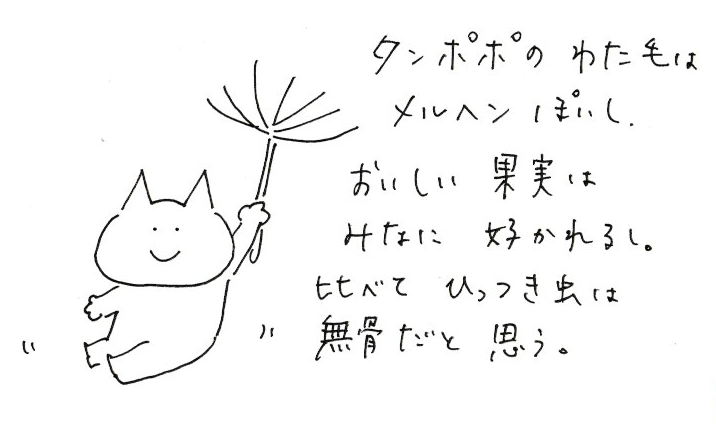 タンポポの わた毛は
メルヘン ぽいし、
おいしい 果実は
みなに 好かれるし。
比べて ひっつき虫は
無骨だと 思う。